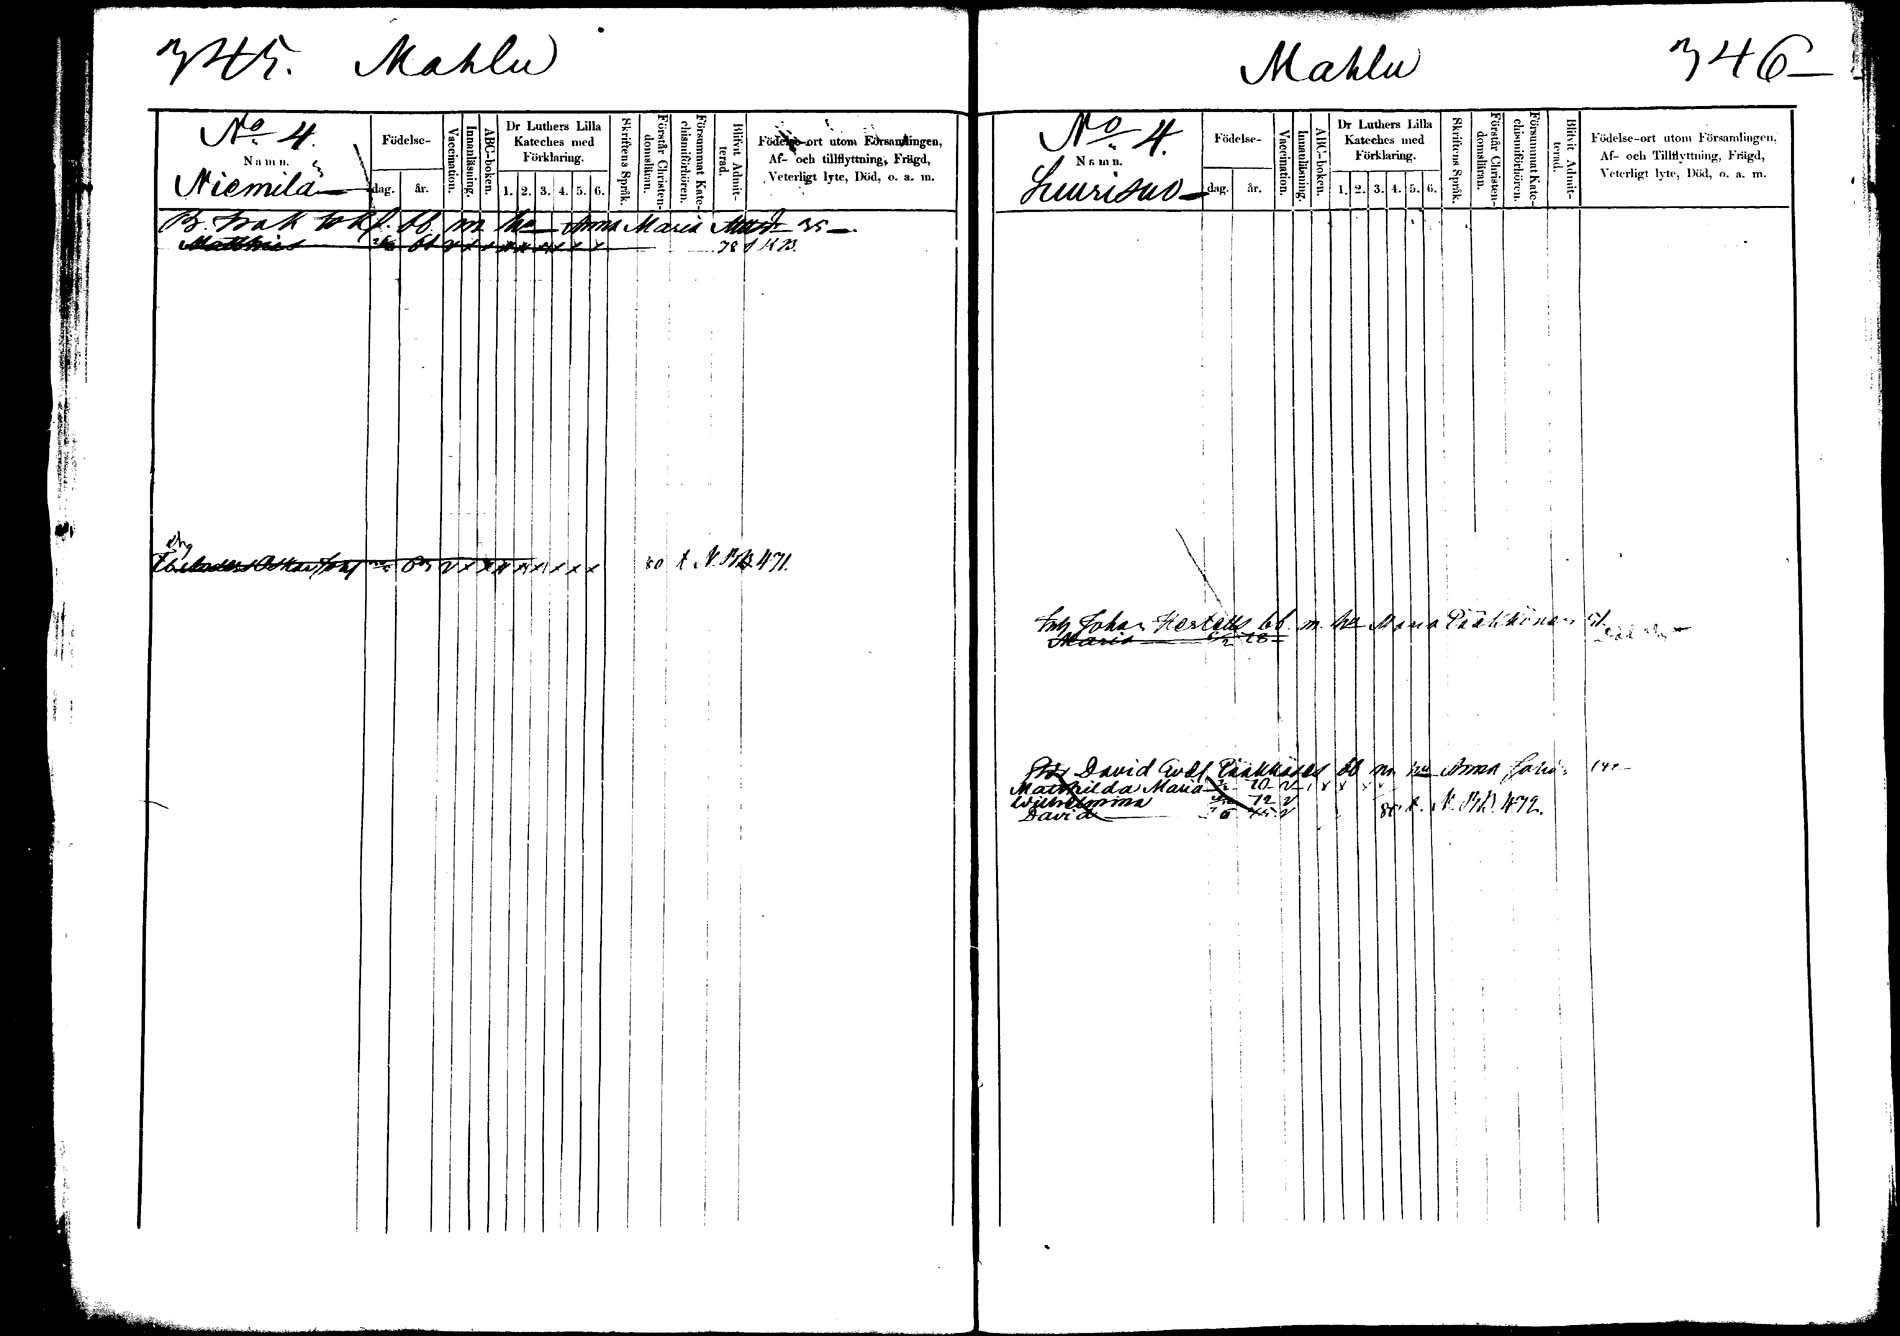 345. Mahlu
No 4.
Namn.
Niemilä
Födelse-
dag. år.
Vaccination.
Innanläsning.
ABC-boken.
Dr Luthers Lilla
Kateches med
Förklaring.
1. 2. 3. 4. 5. 6.
Skriftens Språk.
Förstår Christen-
domsläran.
Försummat Kate-
chismiförhören.
Blifvit Admit-
terad.
Födelse-ort utom Församlingen,
Af- och tillflyttning, Frägd,
Veterligt lyte, Död, o. a. m.
m. Anna Maria 35
Matthias 78
80 t. N. 471.
Mahlu 346
No 4.
Namn.
Suurisuo
Födelse-
dag. år.
Vaccination.
Innanläsning.
ABC-boken.
Dr Luthers Lilla
Kateches med
Förklaring.
1. 2. 3. 4. 5. 6.
Skriftens Språk.
Förstår Christen-
domsläran.
Försummat Kate-
chismiförhören.
Blifvit Admit-
terad.
Födelse-ort utom Församlingen,
Af- och Tillflyttning, Frägd,
Veterligt lyte, Död, o. a. m.
Johan m. Maria Pääkkönen
Maria
David Pääkkönen m. Anna
Mathilda Maria 70
Wilhelmina 72
David 75 t. N. 472.